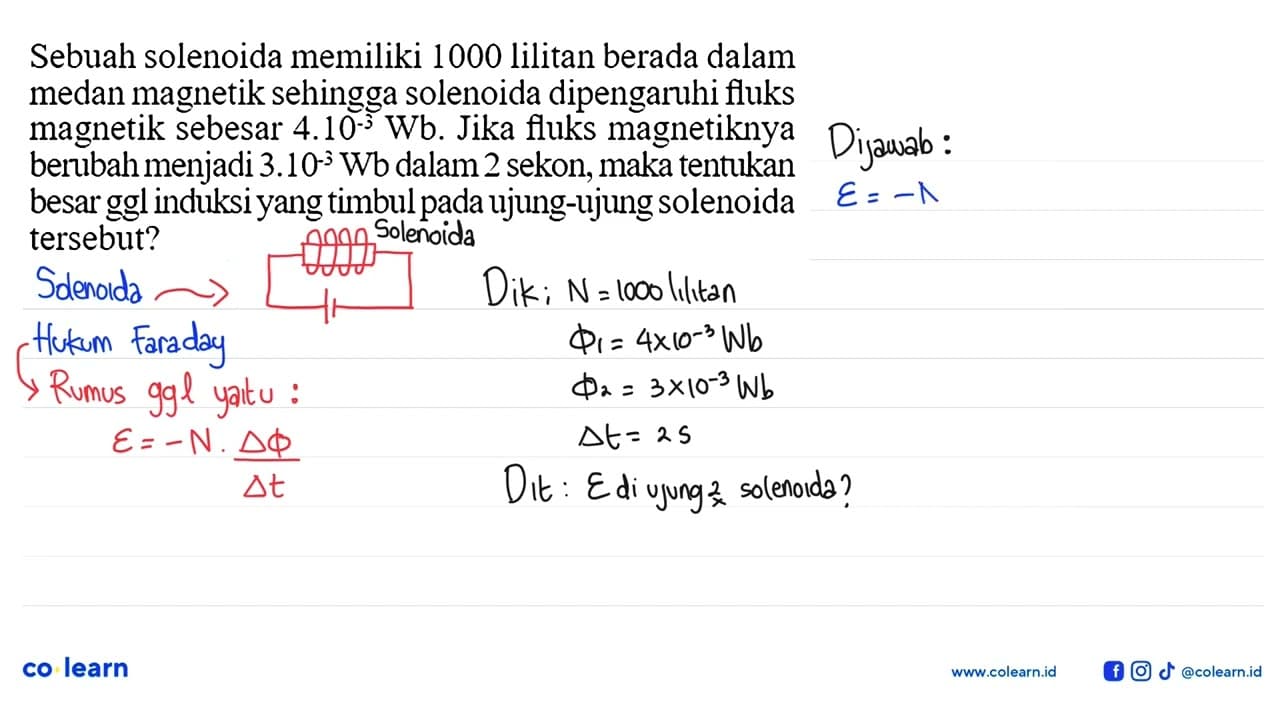 Sebuah solenoida memiliki 1000 lilitan berada dalam
medan magnetik sehingga solenoida dipengaruhi fluks
magnetik sebesar 4.10⁻³ Wb. Jika fluks magnetiknya
berubah menjadi 3.10⁻³ Wb dalam 2 sekon, maka tentukan
besar ggl induksi yang timbul pada ujung-ujung solenoida
tersebut?
Solenoida
Solenoida
Hukum Faraday
Rumus ggl yaitu :
ε = -N . ΔΦ
Δt
Dik ; N = 1000 lilitan
Φ₁ = 4 x 10⁻³ Wb
Φ₂ = 3 x 10⁻³ Wb
Δt = 2 s
Dit : ε di ujung2x solenoida?
Dijawab :
ε = -
co learn
www.colearn.id
@colearn.id